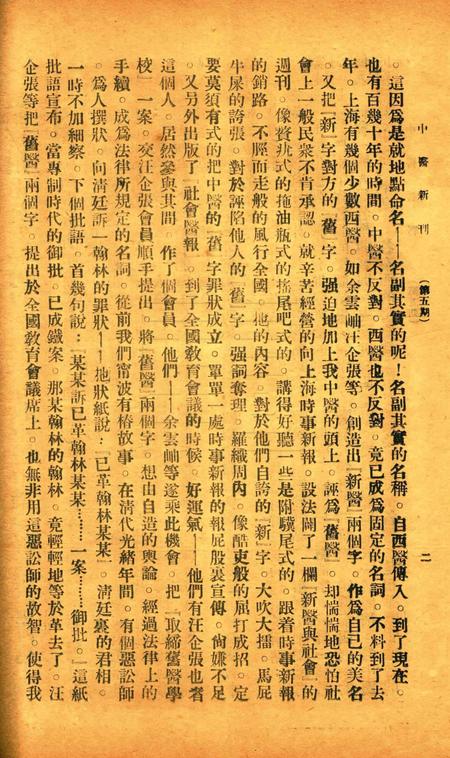 中醫新刊 (第五期) 二
。這因爲是就地點命名——名副其實的呢！名副其實的名稱。自西醫傳入。到了現在。
也有百幾十年的時間。中醫不反對。西醫也不反對。竟已成爲固定的名詞。不料到了去
年。上海有幾個少數西醫。如余雲岫汪企張等。創造出『新醫』兩個字。作爲自己的美名
。又把『新』字對方的『舊』字。强迫地加上我中醫的頭上。誣爲『舊醫』。却惴惴地恐怕社
會上一般民衆不肯承認。就辛苦經營的向上海時事新報。設法闢了一欄『新醫與社會』的
週刊。像贅疣式的拖油瓶式的搖尾吧式的。講得好聽一些是附驥尾式的。跟着時事新報
的銷路。不脛而走般的風行全國。他的內容。對於他們自誇的『新』字。大吹大擂。馬屁
牛屎的誇張。對於誣陷他人的『舊』字。强詞奪理。羅織周內。像酷吏般的屈打成招。定
要莫須有式的把中醫的『舊』字罪狀成立。單單一處時事新報的報屁股裏宣傳。尙嫌不足
。又另外出版了『社會醫報』。到了全國敎育會議的時候。好運氣——他們有汪企張也者
這個人。居然參與其間。作了個會員。他們——余雲岫等遂乘此機會。把『取締舊醫學
校』一案。交汪企張會員順手提出。將『舊醫』兩個字。想由自造的輿論。經過法律上的
手續。成爲法律所規定的名詞。從前我們甯波有樁故事。在清代光緒年間。有個惡訟師
。爲人撰狀。向清廷訴一翰林的罪狀——地狀紙說：『已革翰林某某』。清廷裏的君相。
一時不加細察。下個批語。首幾句說：『某某訴已革翰林某某………一案………御批。』這紙
批語宣布。當專制時代的御批。已成鐵案。那某翰林的翰林。竟輕輕地等於革去了。汪
企張等把『舊醫』兩個字。提出於全國敎育會議席上。也無非用這惡訟師的故智。使得我